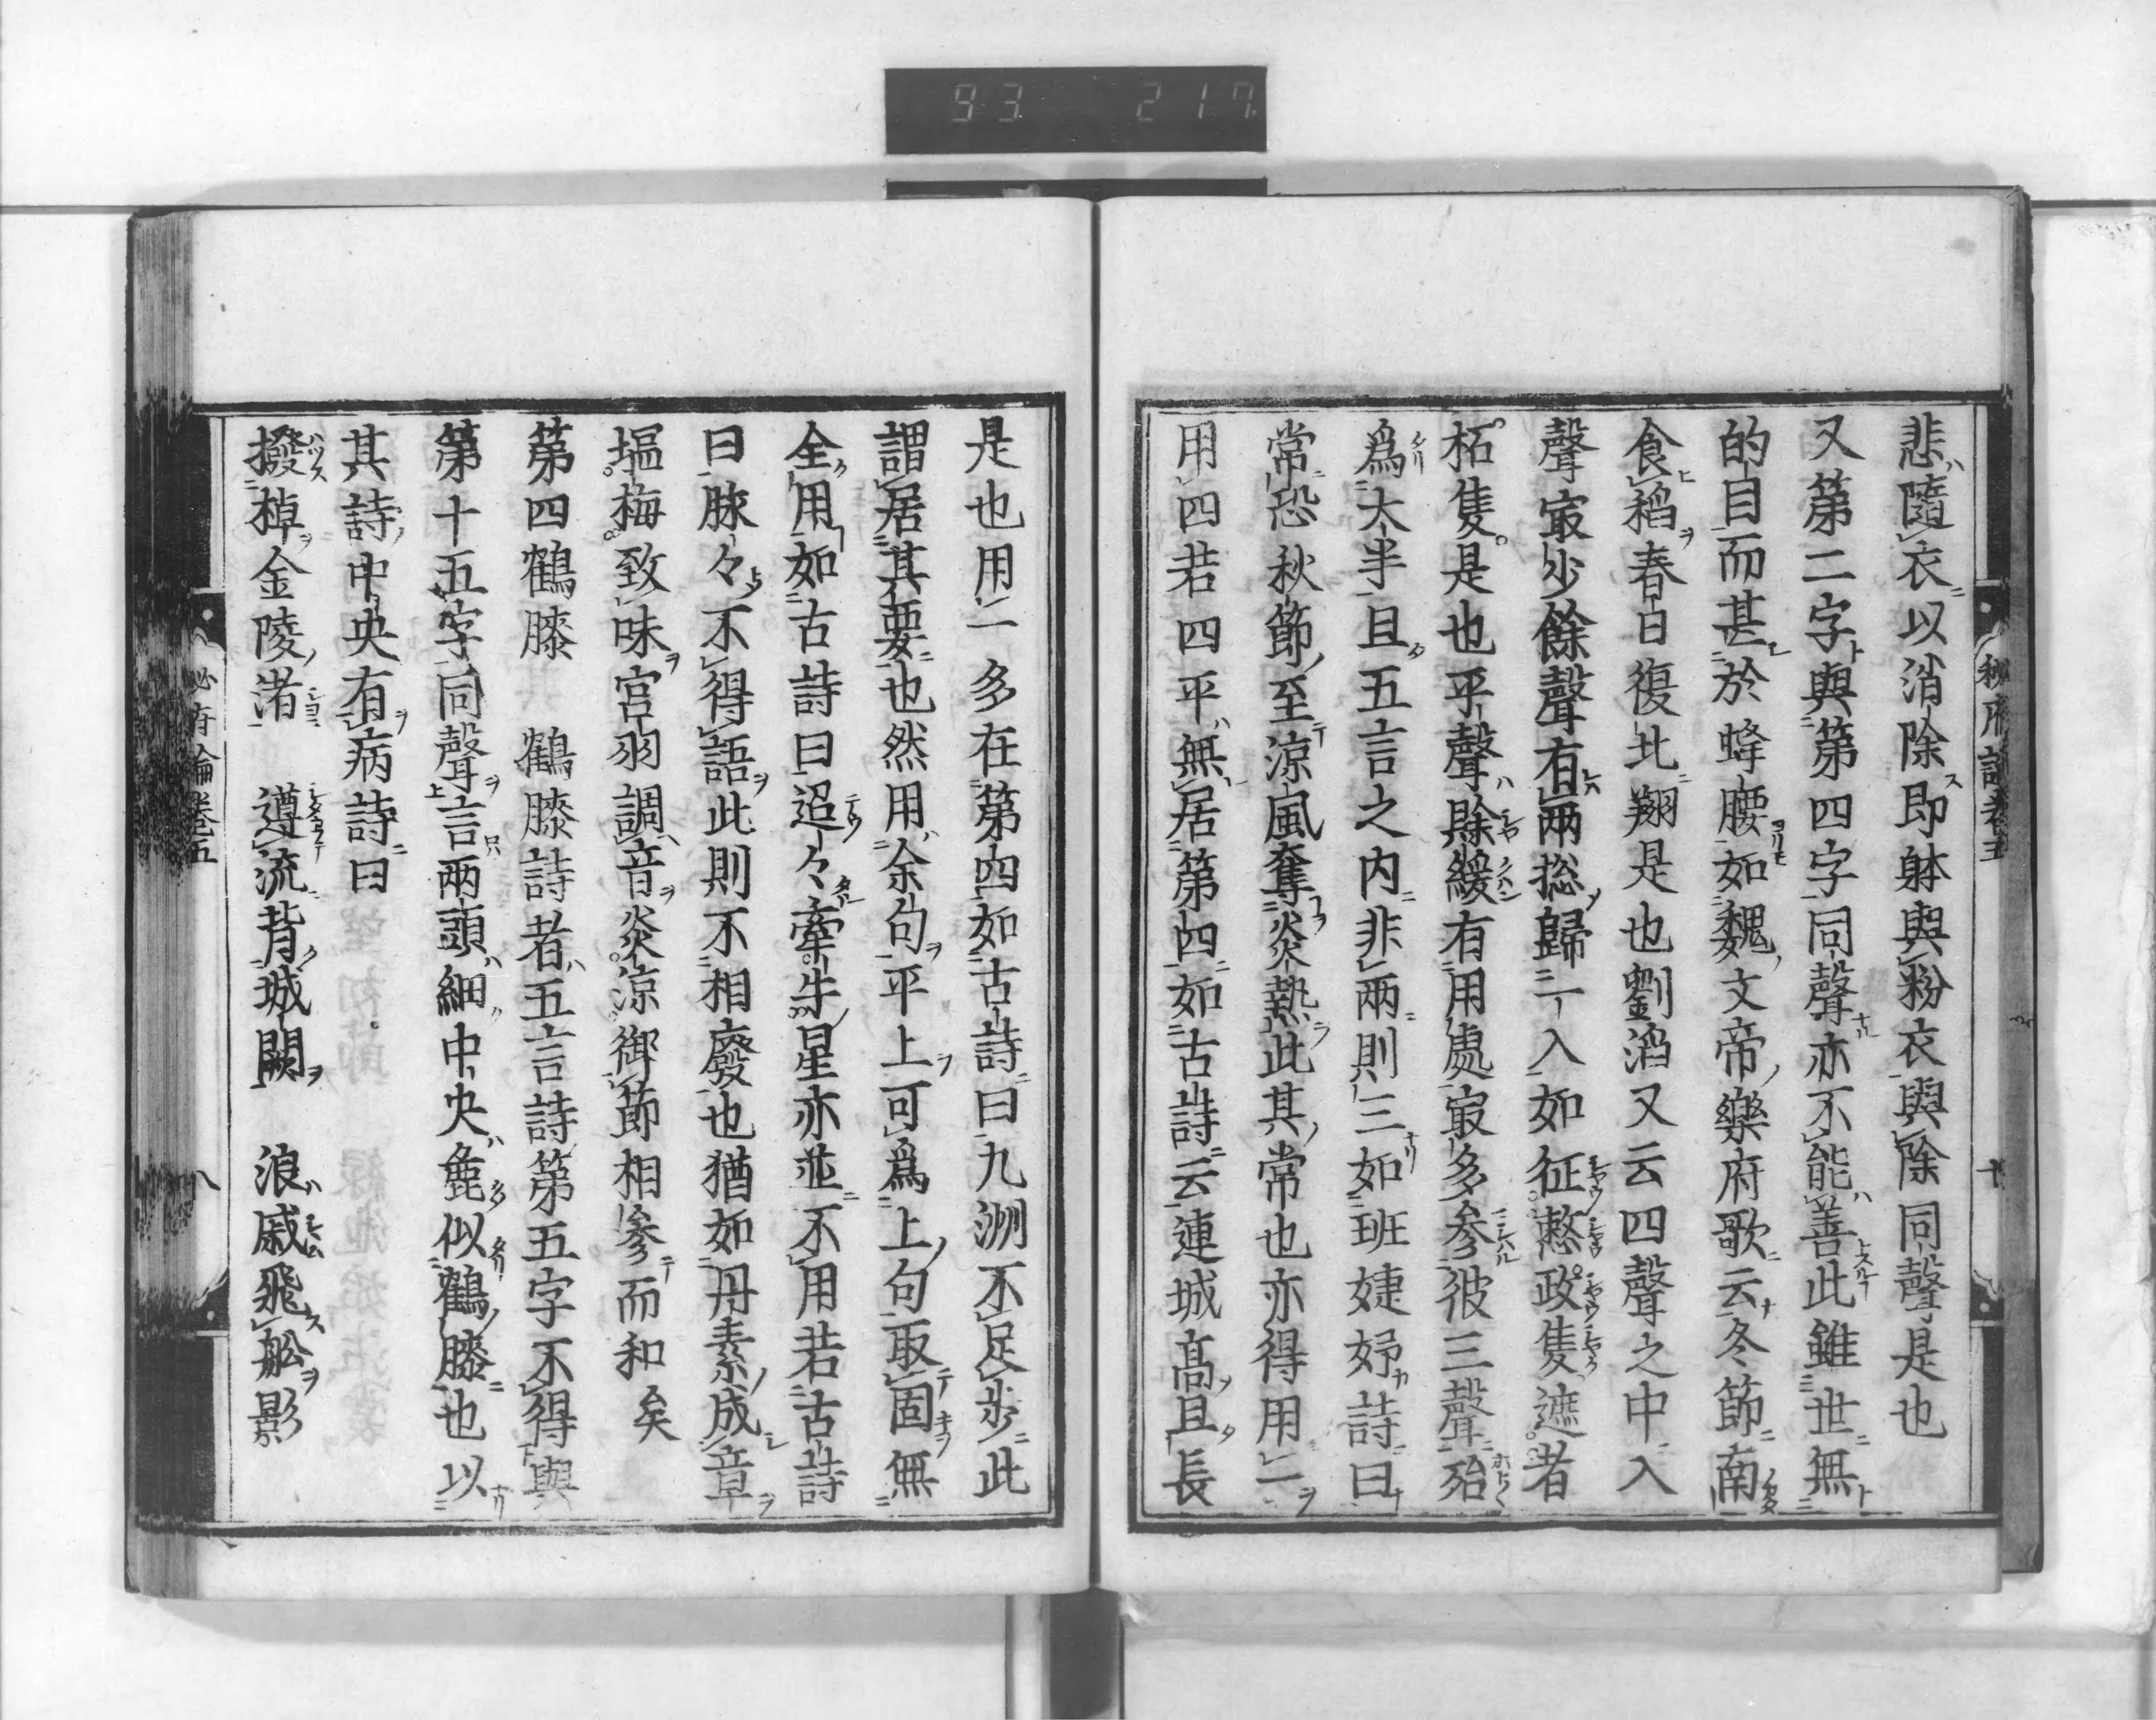 93 217
秘府論卷五
十
悲隨衣以消除即躰與粉衣與除同聲是也
又第二字與第四字同聲亦不能善此雖世無
的目而甚於蜂腰如魏文帝樂府歌云冬節南
食稻春日復北翔是也劉滔又云四聲之中入
聲㝡少餘聲有兩総歸一入如征整政隻遮者
柘隻是也平聲賖緩有用處㝡多参彼三聲殆
爲大半且五言之内非兩則三如班婕妤詩曰
常恐秋節至涼風奪炎熱此其常也亦得用一
用四若四平無居第四如古詩云連城髙且長
是也用一多在第四如古詩曰九洲不足歩此
謂居其要也然用全句平上可爲上句取固無
全用如古詩曰迢々牽牛星亦並不用若古詩
曰脉々不得語此則不相廢也猶如丹素成章
塩梅致味宮羽調音炎涼御節相參而和矣
第四鶴膝 鶴膝詩者五言詩第五字不得與
第十五字同聲言兩頭細中央麁似鶴膝也以
其詩中央有病詩曰
撥棹金陵渚 遵流背城闕 浪戚飛舩影
秘府論卷五
八